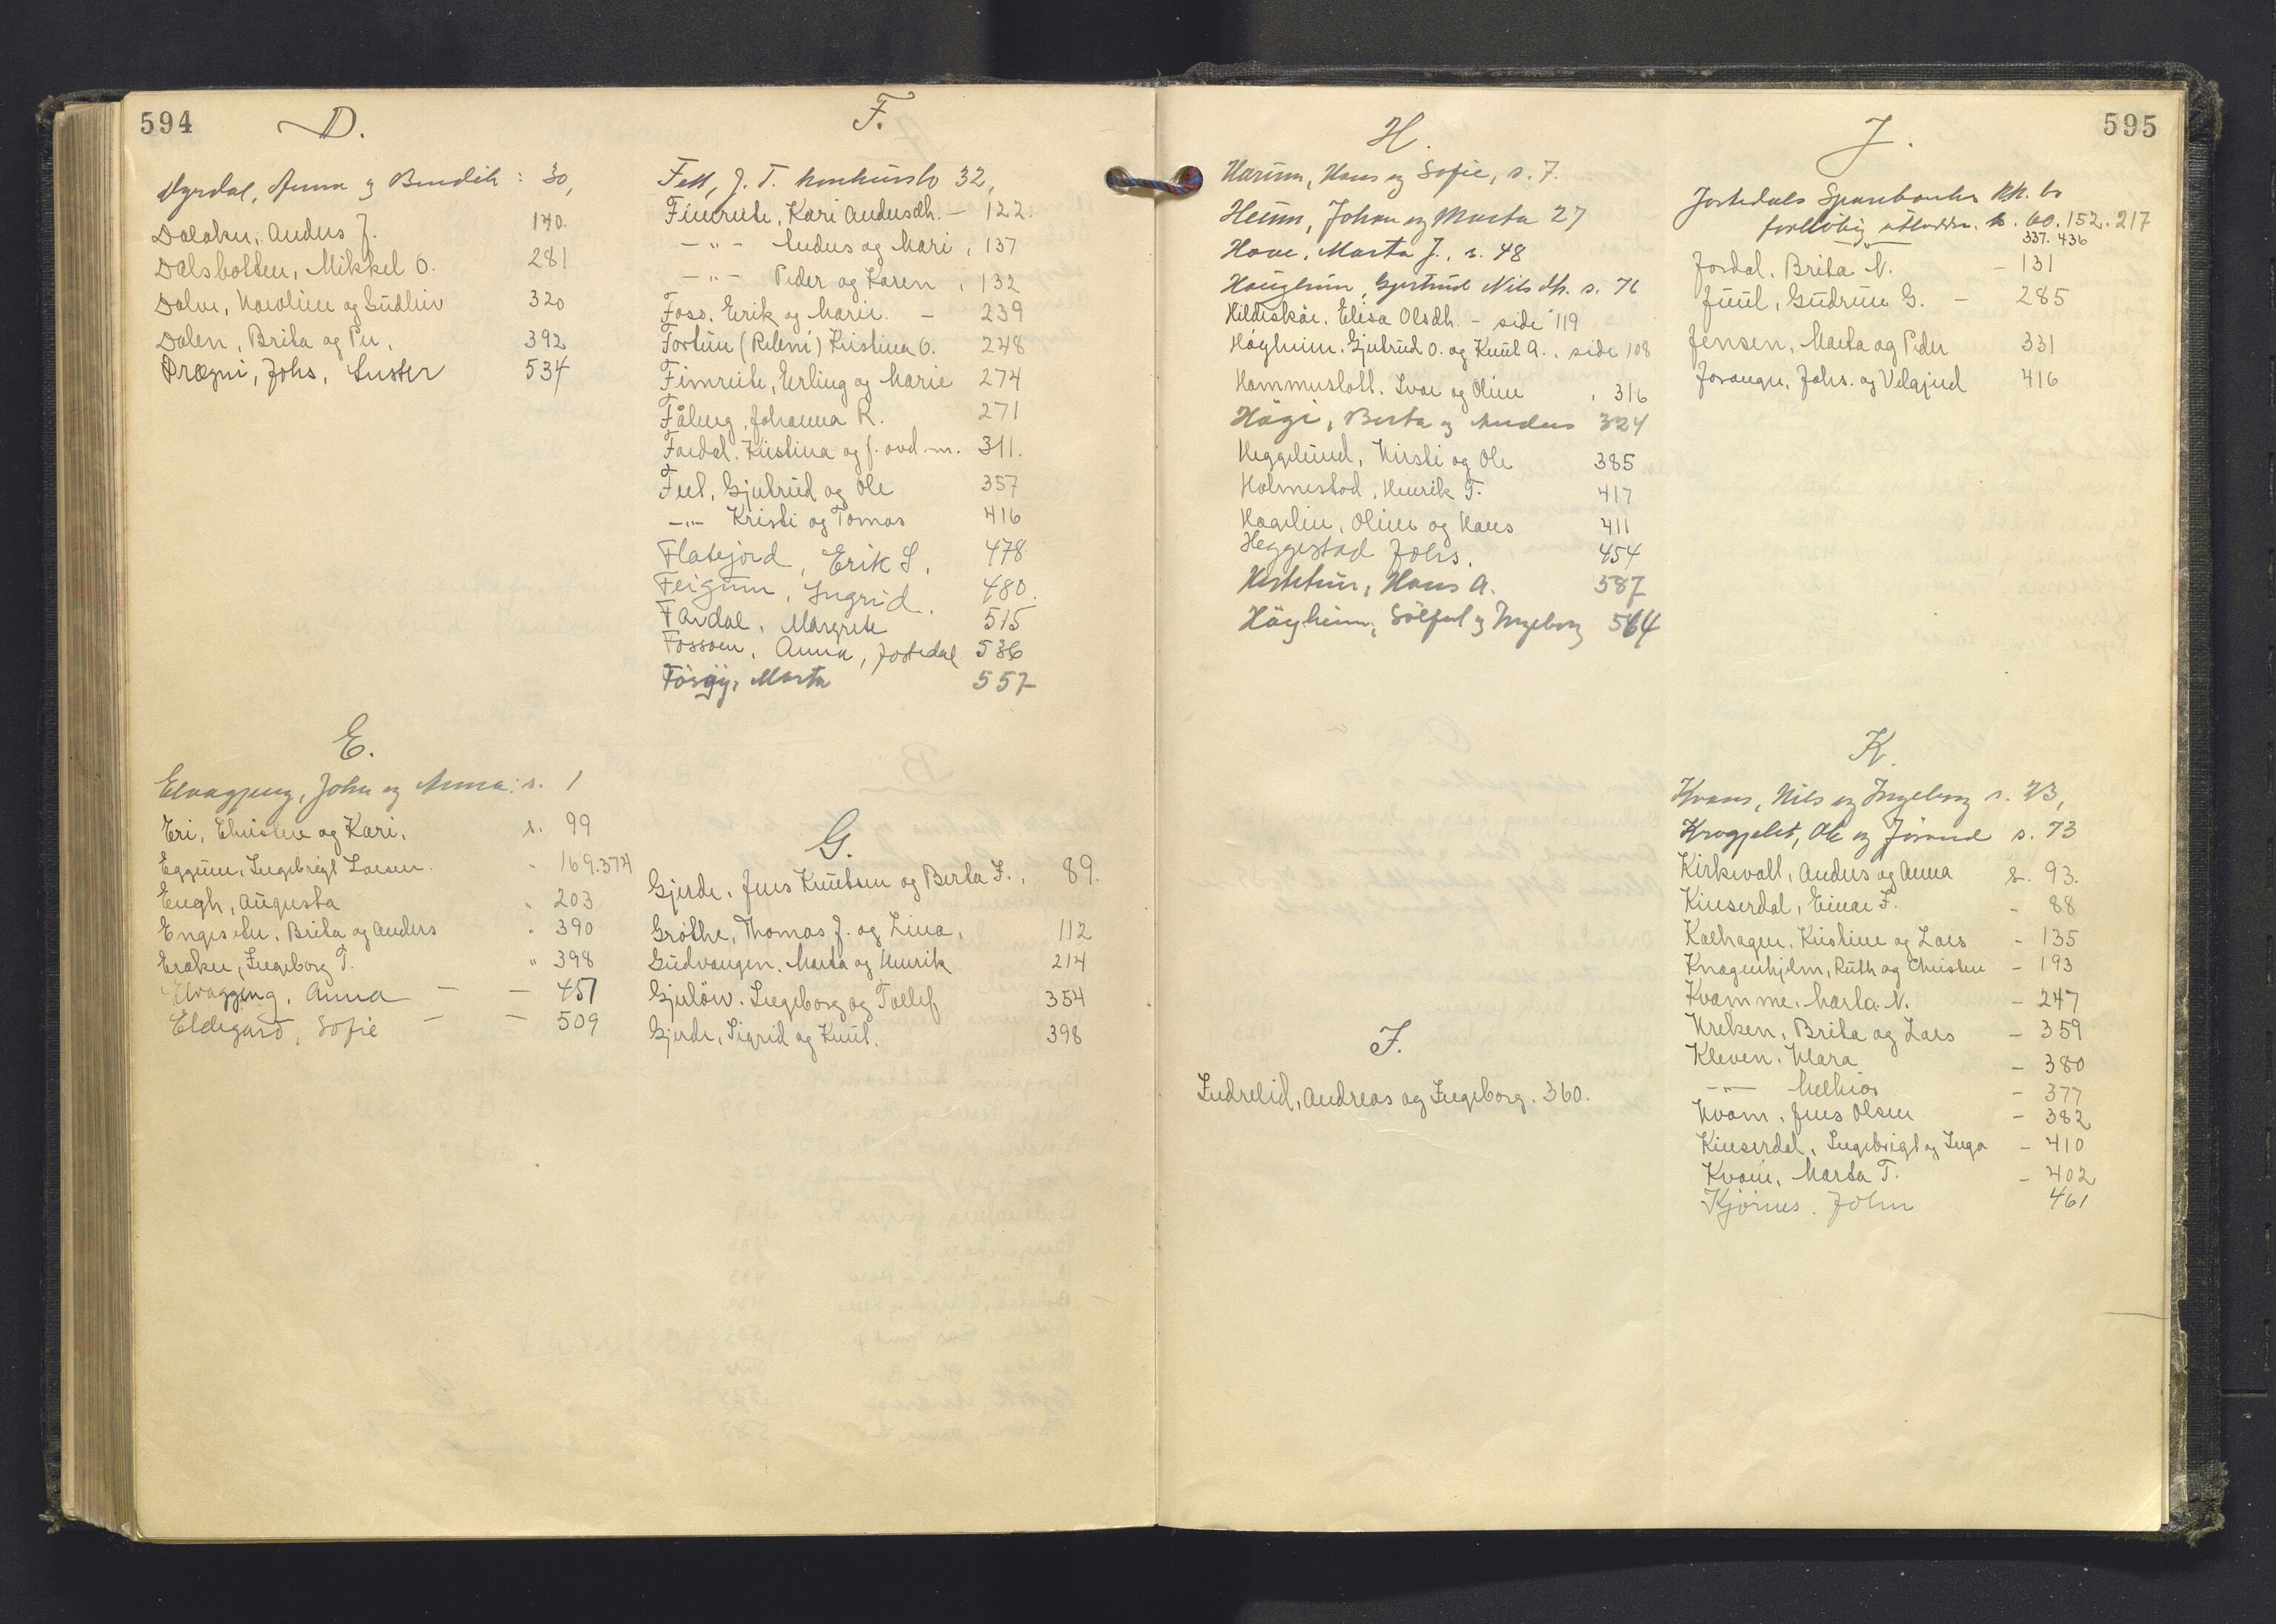 594
D.
Dyrdal, Anna og Bendik: 30,
Dalaker, Anders J. 140.
Dalsbotten, Mikkel O. 281
Dalve, Karoline og Gudliv 320
Dalen, Brita og Per, 392
Drægni, Johs, Luster 534
E.
Elvagjeng, John og Anna: s. 1
Eri, Christen og Kari, s. 99
Eggum, Ingebrigt Larsen. 169.374
Eugh, Augusta 203
Engeseter, Brita og Anders 390
Eraker, Ingeborg T. " 398
Elvagjeng, Anna — — 451
Eldegard, Sofie — — 509
F.
Fett, J. T. konkursbo 32,
Fimreite, Kari Andersdh. — 122.
—"— Anders og Mari, 137
—"— Peder og Karen, 132
Foss, Erik og Marie. — 239
Fortun (Release) Kristina O. 248
Fimreite, Erling og Marie 274
Fåberg, Johanna R. 271
Fardal, Kristina og f. avd. m. 311.
Feet, Gjertrud og Ole 357
—"— Kristi og Tomas 416
Flatejord, Erik S. 478
Feigum, Ingrid. 480.
Fardal, Margrete 515
Fossøen, Anna, Jostedal 536
Forsøy, Marta 557
G.
Gjerde, Jens Knutsen og Berta J., 89.
Grøthe, Thomas J. og Lina, 112
Gudvangen, Marta og Henrik 214
Gjerløw, Ingeborg og Tollef 354
Gjerde, Sigrid og Knut. 398
595
H.
Harum, Hans og Sofie, s. 7.
Heum, Johan og Marta 27
Hove, Marta J., s. 48
Haugheim, Gjertrud Nilsdh. s. 76
Hildeskår, Elisa Olsdh. — side 119
Høyheim, Gjertrud O. og Knut A., side 108
Hammerslott, Ivar og Oline, 316
Høgi, Berta og Anders 324
Heggelund, Kirsti og Ole 385
Holmestad, Henrik T. 417
Hagelin, Oline og Hans 411
Heggestad Johs. 454
Hestetun, Hans A. 587
Høyheim, Solfest og Ingeborg 564
I.
Indrelid, Andreas og Ingeborg. 360.
J.
Jostedals Sparebanks kk. bo
foreløbig utloddn. s. 60. 152. 217
337. 436
Jordal, Brita N. — 131
Juul, Gudrun G. — 285
Jensen, Marta og Peder 331
Joranger, Johs. og Velgjerd 416
K.
Kvam, Nils og Ingeborg s. 23,
Krogjelet, Ole og Jorand s. 73
Kirkevoll, Anders og Anna s. 93.
Kinserdal, Einar F. - 88
Kalhagen, Kristine og Lars - 135
Knagenhjelm, Ruth og Christen - 193
Kvamme, Marta N. - 247
Kreken, Brita og Lars - 359
Kleven, Klara - 380
—"— Melkior - 377
Kvam, Jens Olsen - 382
Kinserdal, Ingebrigt og Inga - 410
Kvam, Marta T. - 402
Kjörnes, John 461